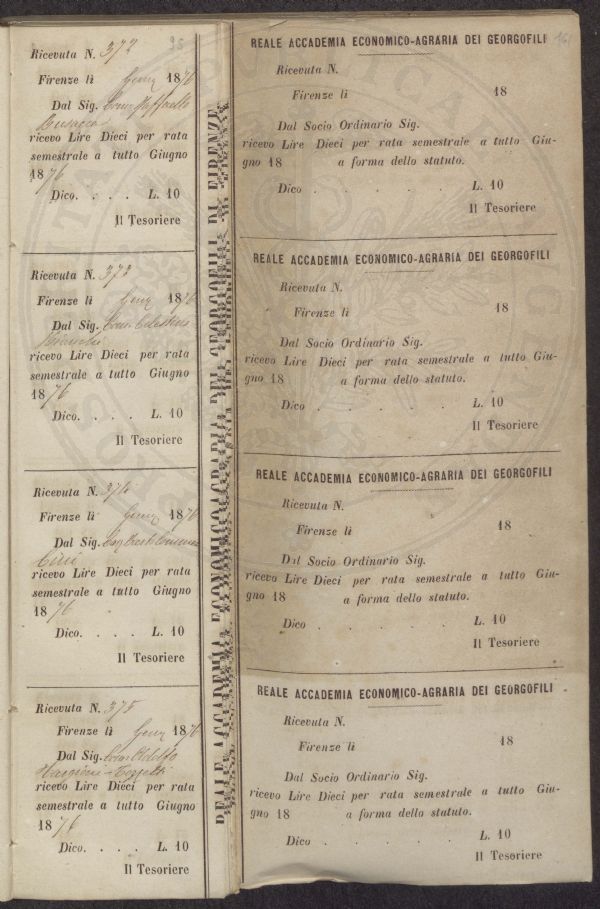 95
Ricevuta N. 372
Firenze li Genn 1876
Dal Sig. Raffaello
Busacca
ricevo Lire Dieci per rata
semestrale a tutto Giugno
1876
Dico. . . . L. 10
Il Tesoriere
Ricevuta N. 373
Firenze li Genn 1876
Dal Sig. Celestino
Bianchi
ricevo Lire Dieci per rata
semestrale a tutto Giugno
1876
Dico. . . . L. 10
Il Tesoriere
Ricevuta N. 374
Firenze li Genn 1876
Dal Sig.
Cini
ricevo Lire Dieci per rata
semestrale a tutto Giugno
1876
Dico. . . . L. 10
Il Tesoriere
Ricevuta N. 375
Firenze li Genn 1876
Dal Sig. Adolfo
Targioni-Tozzetti
ricevo Lire Dieci per rata
semestrale a tutto Giugno
1876
Dico. . . . L. 10
Il Tesoriere
REALE ACCADEMIA ECONOMICO-AGRARIA DEI GEORGOFILI DI FIRENZE
REALE ACCADEMIA ECONOMICO-AGRARIA DEI GEORGOFILI
Ricevuta N.
Firenze li 18
Dal Socio Ordinario Sig.
ricevo Lire Dieci per rata semestrale a tutto Giu-
gno 18 a forma dello statuto.
Dico . . . . . L. 10
Il Tesoriere
REALE ACCADEMIA ECONOMICO-AGRARIA DEI GEORGOFILI
Ricevuta N.
Firenze li 18
Dal Socio Ordinario Sig.
ricevo Lire Dieci per rata semestrale a tutto Giu-
gno 18 a forma dello statuto.
Dico . . . . . L. 10
Il Tesoriere
REALE ACCADEMIA ECONOMICO-AGRARIA DEI GEORGOFILI
Ricevuta N.
Firenze li 18
Dal Socio Ordinario Sig.
ricevo Lire Dieci per rata semestrale a tutto Giu-
gno 18 a forma dello statuto.
Dico . . . . . L. 10
Il Tesoriere
REALE ACCADEMIA ECONOMICO-AGRARIA DEI GEORGOFILI
Ricevuta N.
Firenze li 18
Dal Socio Ordinario Sig.
ricevo Lire Dieci per rata semestrale a tutto Giu-
gno 18 a forma dello statuto.
Dico . . . . . L. 10
Il Tesoriere